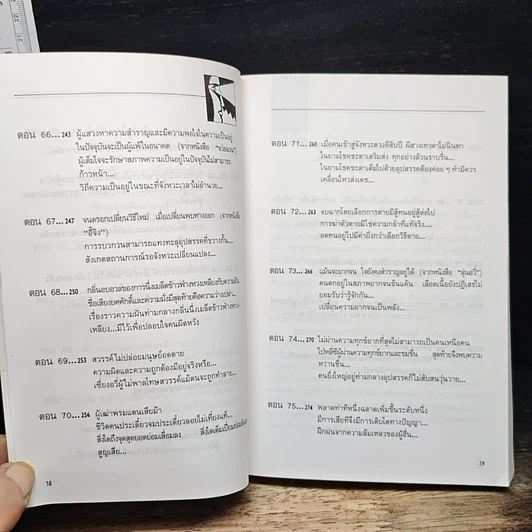 ตอน 66...243 ผู้แสวงหาความสำราญและมีความพอใจในความเป็นอยู่
ในปัจจุบันจะเป็นผู้แพ้ในอนาคต (จากหนังสือ
ผู้เต็มใจจะรักษาสภาพความเป็นอยู่ในปัจจุบันไม่สามารถ
ก้าวหน้า...
วิถีความเป็นอยู่ในขณะที่จังหวะเวลาไม่อำนวย...
ตอน 67...247 จนตรอกเปลี่ยนวิธีใหม่ เมื่อเปลี่ยนพบทางออก (จากหนังสือ
"อี้จิง")
การรบกวนสามารถแทงทะลุอุปสรรคที่ขวางกั้น...
สังเกตสถานการณ์รอจังหวะเปลี่ยนแปลง...
ตอน 68...250 กลิ่นอบอวลของการนึ่งเมล็ดข้าวฟ่างหวงเหลียง
ชื่อเสียงยศศักดิ์และความมั่งมีสุดท้ายคือความว่างเปล่า...
เรื่องราวความฝันท่ามกลางกลิ่นนึ่งเมล็ดข้าวฟ่างหวง-
เหลียง...มีไว้เพื่อปลอบใจคนผิดหวัง
ตอน 69...253 สวรรค์ไม่ปล่อยมนุษย์อดตาย
ความผิดและความถูกต้องมีอยู่จริงหรือ...
เซี่ยงอวี่ผู้ไม่พาลโทษสวรรค์แม้ตนจะถูกทำลาย...
ตอน 70...256 ผู้เฒ่าพรมแดนเสียม้า
ชีวิตคนประเดี๋ยวจมประเดี๋ยวลอยไม่เที่ยงแท้...
สิ่งใดถึงจุดสุดยอดย่อมเสื่อมลง สิ่งใดเต็มเปี่ยมย่อม
สูญเสีย...
18
ตอน 71...260 เมื่อคนเข้าสู่จังหวะดวงดีสิบปี ผีสางเทวดาไม่นินทา
ในยามโชคชะตาเสริมส่ง ทุกอย่างล้วนราบรื่น...
ในยามโชคชะตาเต็มไปด้วยอุปสรรคต้องค่อย ๆ ทำมีควร
เคลื่อนไหวส่งเดช...
ตอน 72...263 จบฉากโดยเลือกการตายมิสู้ทนอยู่สู้ต่อไป
การฆ่าตัวตายมิใช่ความกล้าที่แท้จริง...
อดทนอยู่ไปมีค่ายิ่งกว่าเลือกวิธีตาย...
ตอน 73...266 แม้นจะยากจน ใจยังคงสำราญอยู่ได้ (จากหนังสือ
คนอยู่ในสภาพยากจนร้นแค้น เลือดเนื้อยังปฏิเสธไม่
ยอมรับว่ารู้จักกัน...
เปลี่ยนความยากจนเป็นพลัง...
ตอน 74...270 ไม่ผ่านความทุกข์ยากที่สุดไม่สามารถเป็นคนเหนือคน
ความทุกข์ยากและขมขื่น สุดท้ายจึงพบความ
หวานชื่น...
คนยิ่งใหญ่อยู่ท่ามกลางอุปสรรคก็ไม่สับสนวุ่นวาย...
ตอน 75...274 พลาดท่าทีหนึ่งฉลาดเพิ่มขึ้นระดับหนึ่ง
มีการเสียที่จึงมีการเติบโตทางปัญญา...
ฝึกฝนจากความล้มเหลวของผู้อื่น...
19